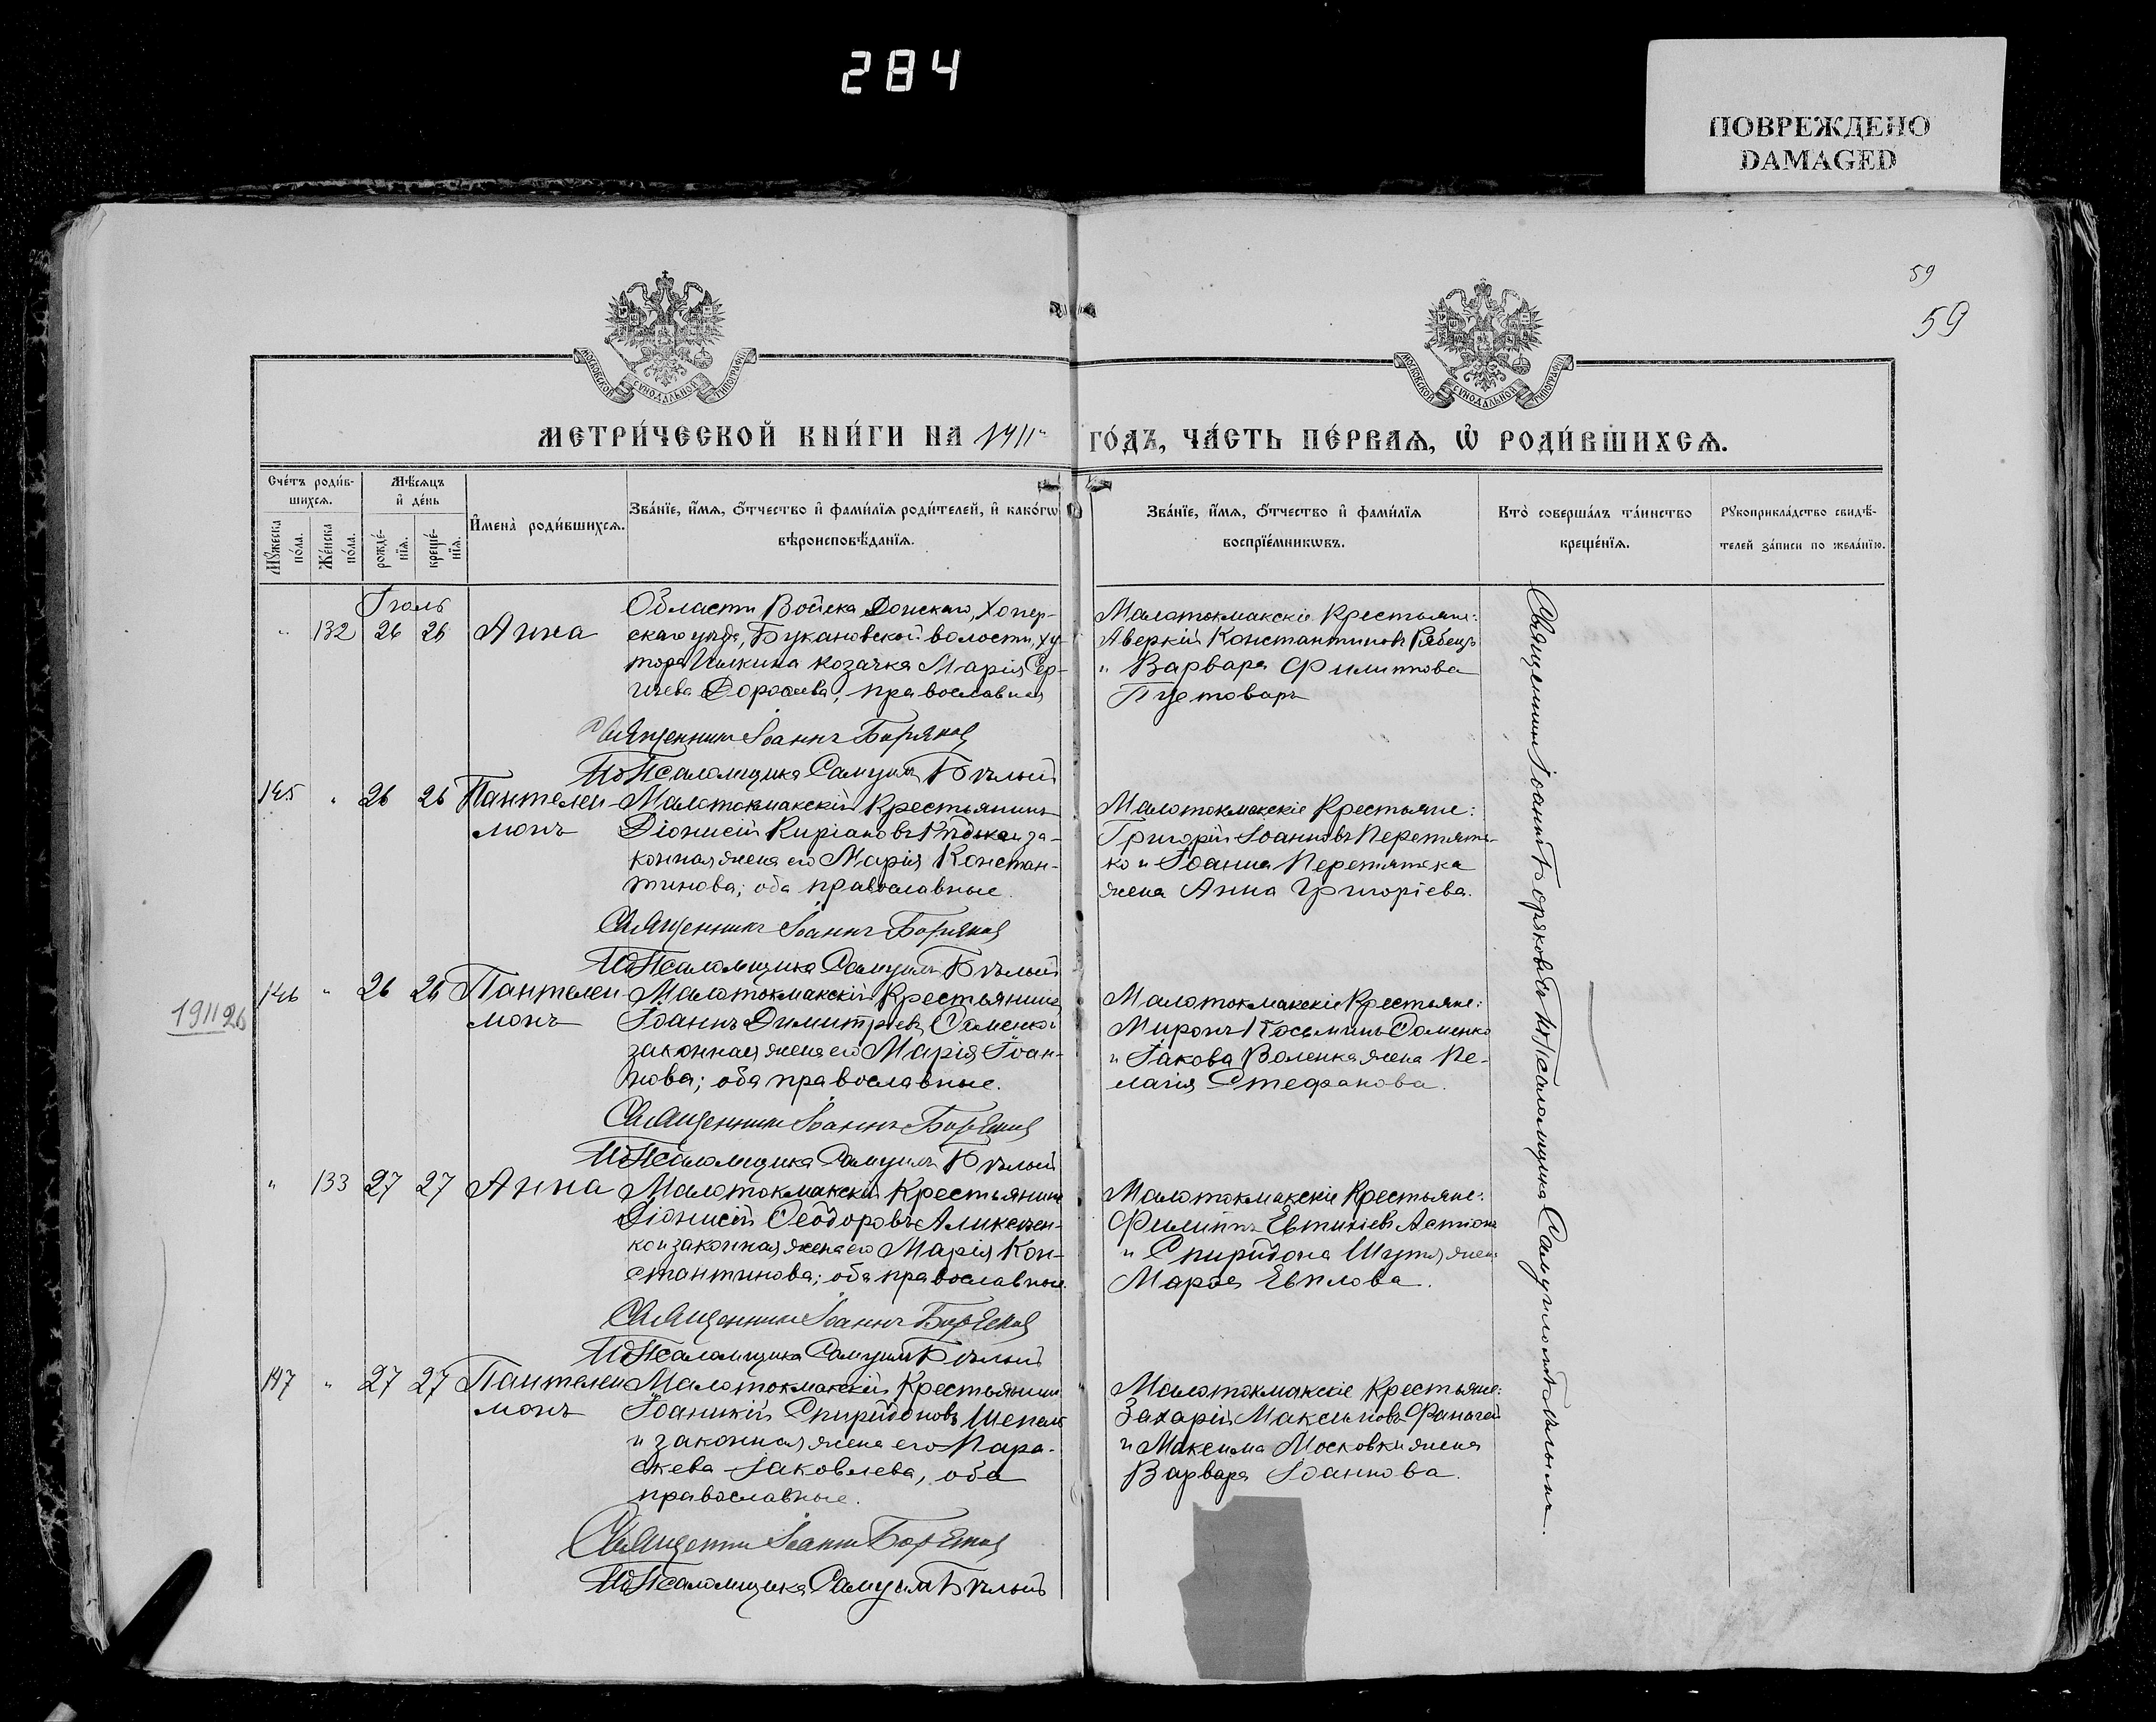 284
ПОВРЕЖДЕНО
DAMAGED
59
59
МОСКОВСКОЙ СУНОДАЛЬНОЙ ТИПОГРАФІИ
МОСКОВСКОЙ СУНОДАЛЬНОЙ ТИПОГРАФІИ
МЕТРИ́ЧЕСКОЙ КНИ́ГИ НА 1911
ГО́ДЪ, ЧА́СТЬ ПЕ́РВАѦ, Ѿ РОДИ́ВШИХСѦ.
Сче́тъ роди́в-
шихсѧ.
Мꙋжеска по́ла.
Же́нска по́ла.
Мѣ́сѧцъ
и҆ де́нь
рожде́-
нїѧ.
креще́-
нїѧ.
И҆мена̀ роди́вшихсѧ.
Зва́нїе, и҆́мѧ, ѻ҆́тчество и҆ фами́лїѧ роди́телей, и҆ како́гѡ
вѣроисповѣ́данїѧ.
Зва́нїе, и҆́мѧ, ѻ҆́тчество и҆ фами́лїѧ
воспрїе́мникѡвъ.
Кто̀ соверша́лъ та́инство
креще́нїѧ.
Рꙋкоприкла́дство свидѣ́-
телей за́писи по жела́нїю.
Іюль
" 132 26 26 Анна
Области Войска Донскаго, Хопер-
скаго уѣзда, Букановской волости, ху-
тора козачка Марія Сер-
гіева православная
Священникъ Іоаннъ Боряковъ
ИдПсаломщика Самуилъ Бѣлый
Малотокмакскіе Крестьяне:
Аверкій Константиновъ Рябецъ
и Варвара Филиппова
Пустоваръ
145 " 26 26 Пантелеи-
монъ
Малотокмакскій Крестьянинъ
Діонисій Киріаковъ за-
конная жена его Марія Констан-
тинова; оба православные.
Священникъ Іоаннъ Боряковъ
ИдПсаломщика Самуилъ Бѣлый
Малотокмакскіе Крестьяне:
Григорій Іоанновъ Перетятъ-
ко и Іоанна Перетятька
жена Анна Григоріева.
1911 26
146 " 26 26 Пантелеи-
монъ
Малотокмакскій Крестьянинъ
Іоаннъ Димитріевъ Соменко и
законная жена его Марія Іоан-
нова; оба православные.
Священникъ Іоаннъ Боряковъ
ИдПсаломщика Самуилъ Бѣлый
Малотокмакскіе Крестьяне:
Миронъ Косьминъ Соменко
и Іакова Воленка жена Пе-
лагія Стефанова.
" 133 27 27 Анна
Малотокмакскій Крестьянинъ
Діонисій Ѳеодоровъ Аликсѣен-
ко и законная жена его Марія Кон-
стантинова; оба православные.
Священникъ Іоаннъ Боряковъ
ИдПсаломщика Самуилъ Бѣлый
Малотокмакскіе Крестьяне:
Филиппъ Евтихіевъ
и Спиридона Шутя жена
Марѳа Евплова.
147 " 27 27 Пантелеи
монъ
Малотокмакскій Крестьянинъ
Іоаникій Спиридоновъ
и законная жена его Пара-
скева Іаковлева, оба
православные.
Священникъ Іоаннъ Боряковъ
ИдПсаломщика Самуилъ Бѣлый
Малотокмакскіе Крестьяне:
Захарій Максимовъ
и Максима Московки жена
Варвара Іоаннова.
Священникъ Іоаннъ Боряковъ съ ИдПсаломщика Самуиломъ Бѣлымъ.